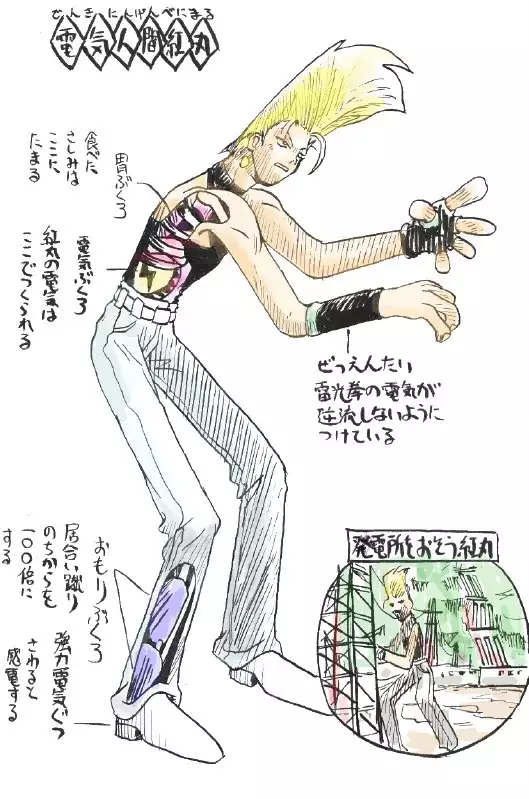 でんきにんげんべにまる
電気人間紅丸
胃ぶくろ
食べた
さしみは
ここに
たまる
電気ぶくろ
紅丸の電気は
ここでつくられる
ぜつえんたい
雷光拳の電気が
逆流しないように
つけている
おもりぶくろ
居合い蹴り
のちからを
一〇〇倍に
する
強力電気ぐつ
さわると
感電する
発電所をおそう紅丸